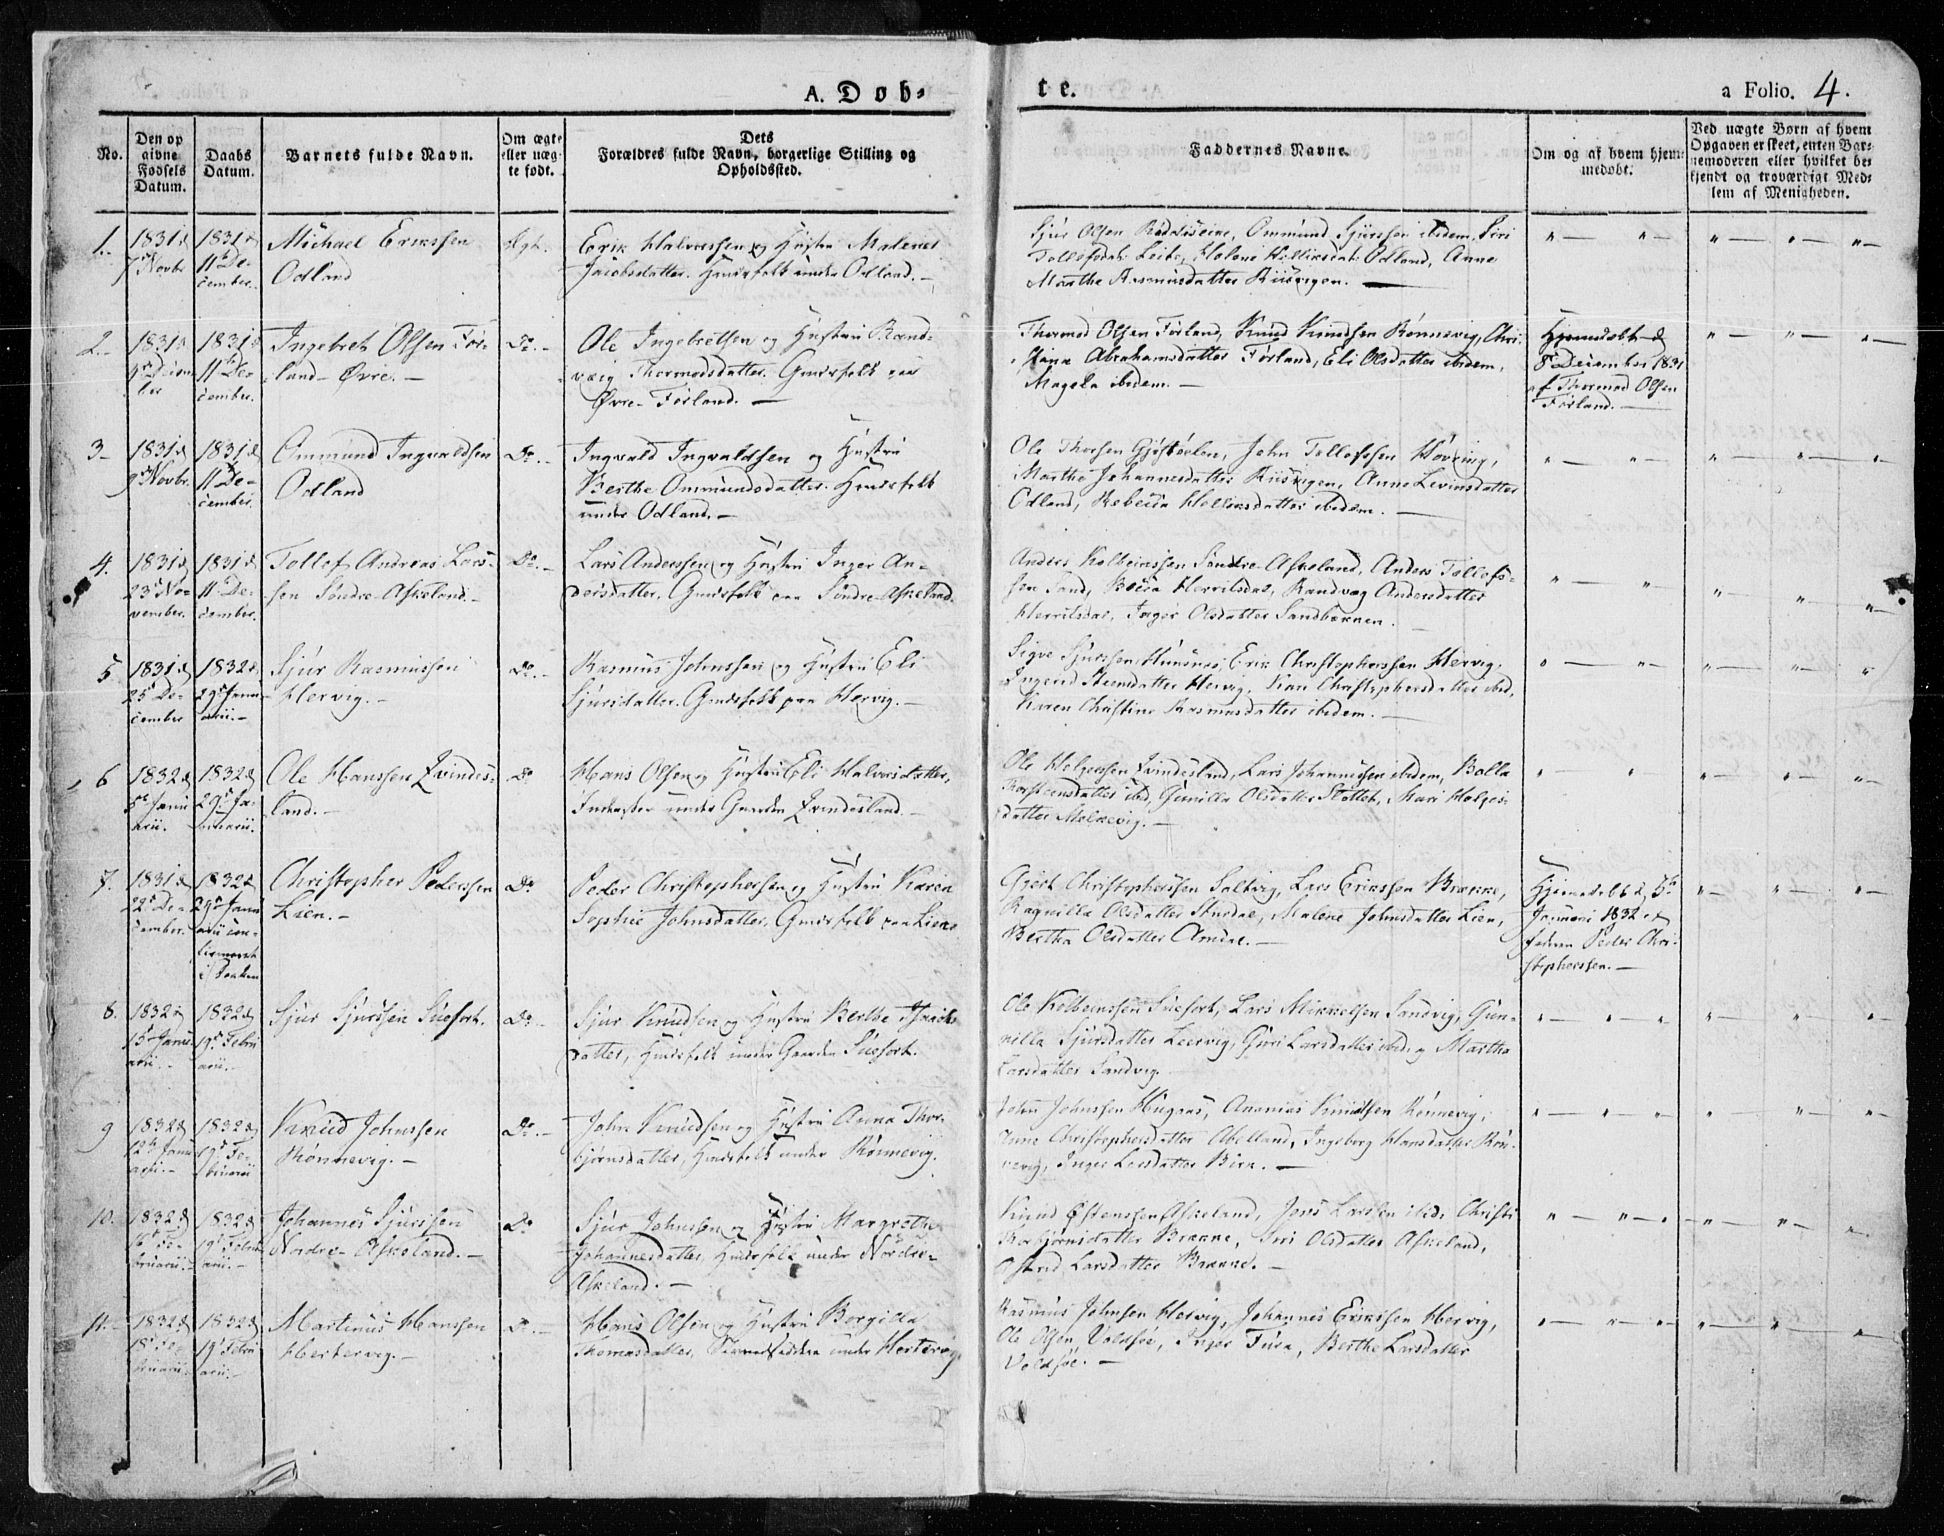 A. Døb-
te.
a Folio. 4.
No.
Den op
givne
Fødsels
Datum.
Daabs
Datum.
Barnets fulde Navn.
Om ægte
eller uæg-
te født.
Dets
Forældres fulde Navn, borgerlige Stilling og
Opholdssted.
Faddernes Navne.
Om og af hvem hjem-
medøbt.
Ved uægte Børn af hvem
Opgaven er skeet, enten Bar-
nemoderen eller hvilket be-
kjendt og troværdigt Med-
lem af Menigheden.
1.
1831 d
7 Novbr
1831 d
11 De-
cember.
Michael Erikssen
Odland
Ægt.
Erik Halvorssen og Hustru Malene
Jacobsdatter. Huusfolk under Odland.
Sjur Olsen Ommund Sjurssen ibidem, Siri
Odland, Anne
Marthe Rasmusdatter
2.
1831 d
1831 d
11 De-
cember.
Ingebret Olsen Før-
land Øvre.
Do.
Ole Ingebretsen og Hustru Rand-
væig Thormodsdatter. Gaardfolk paa
Øvre-Førland.
Thormod Olsen Førland, Knud Knudsen Rønnevig, Chri-
stina Abrahamsdatter Førland, Eli Olsdatter ibidem,
Magela ibidem.
Hjemmedøbt d
8 December 1831
af Thormod Olsen
Førland.
3
1831 d
9 Novbr
1831 d
11 De-
cember.
Ommund Ingvaldsen
Odland
Do.
Ingvald Ingvaldsen og Hustru
Berthe Ommundsdatter. Huusfolk
under Odland.
Ole Thorsen John Tollefssen Høvring,
Marthe Johannesdatter Anne Levinsdatter
Odland, ibidem.
4.
1831 d
23 No-
vember.
1831 d
11 De-
cember.
Tollef Andreas Lars-
sen Søndre-Askeland.
Do.
Lars Anderssen og Hustru Inger An-
dersdatter. Gaardfolk paa Søndre-Askeland.
Andres Kolbeinssen Søndre-Askeland, Anders Tollefs-
sen Sand, Randvæg Andersdatter
Inger Olsdatter
5
1831 d
25 De-
cember
1832 d
29 Janu-
arii.
Sjur Rasmussen
Hervig.
Do.
Rasmus Johnssen og Hustru Eli
Sjursdatter. Gaardfolk paa Hervig.
Sigve Sjurssen Erik Christopherssen Hervig,
Ingerid Hervig, Kari Christophersdatter ibid,
Karen Christine Rasmusdatter ibidem.
6
1832 d
5 Janu
arii.
1832 d
29 Ja-
nuarii.
Ole Hanssen Qvindes-
land.
Do
Hans Olsen og Hustru Eli Halvorsdatter,
Inderster under Gaarden Qvindesland.
Ole Helgessen Qvindesland, Lars Johannessen ibidem,
ibid, Gunilla Olsdatter Kari Helges-
datter
7.
1831 d
22 De-
cember.
1832 d
29 Janu
arii con-
firmeret
i
Christopher Pederssen
Lien.
Do
Peder Christopherssen og Hustru Karen
Sophie Johnsdatter. Gaardfolk paa Lien
Gjert Christopherssen Saltvig, Lars Erikssen Brække,
Ragnilla Olsdatter Malene Johnsdatter Lien,
Bertha Olsdatter Amdal.
Hjemmedøbt d 5
Januari 1832 af
faderen Peder Chri-
stopherssen.
8.
1832 d
15 Janu-
arii.
1832 d
19 Febru
arii.
Sjur Sjurssen
Do.
Sjur Knudsen og Hustru Berthe
datter, Huusfolk under Gaarden
Ole Kolbeinssen Lars Mikkelsen Sandvig, Gun-
nilla Sjursdatter Leervig, Guri Larsdatter ibid. og Martha
Larsdatter Sandvig.
9
1832 d
12 Janu
arii.
1832 d
19 Fe-
bruarii
Knud Johnssen
Rønnevig.
Do.
John Knudsen og Hustru Anna Thor-
bjørnsdatter, Huusfolk under Rønnevig.
John Johnssen Ananias Knudsen Rønnevig,
Anne Christophersdatter Abelland, Ingeborg Hansdatter Røn-
nevig, Inger Larsdatter
10.
1832 d
16 Fe-
bruarii.
1832 d
19 Febru
arii.
Johannes Sjurssen
Nordre-Askeland.
Do
Sjur Johnsen og Hustru Margrethe
Johannesdatter, Huusfolk under Nordre-
Askeland.
Knud Østenssen Askeland, Jens Larssen ibid. Christi
Thorbjørnsdatter Brække, Siri Olsdatter Askeland,
Larsdatter Brække.
11.
1832 d
18 Fe-
bruarii.
1832 d
19 Febru
arii.
Martinus Hanssen
Hertervig.
Do.
Hans Olsen og Hustru Borgilda
Thomasdatter. under Hertervig
Rasmus Johnsen Hervig, Johannes Erikssen Hervig,
Ole Olsen Valdsøe, Berthe Larsdatter
Valdsøe.